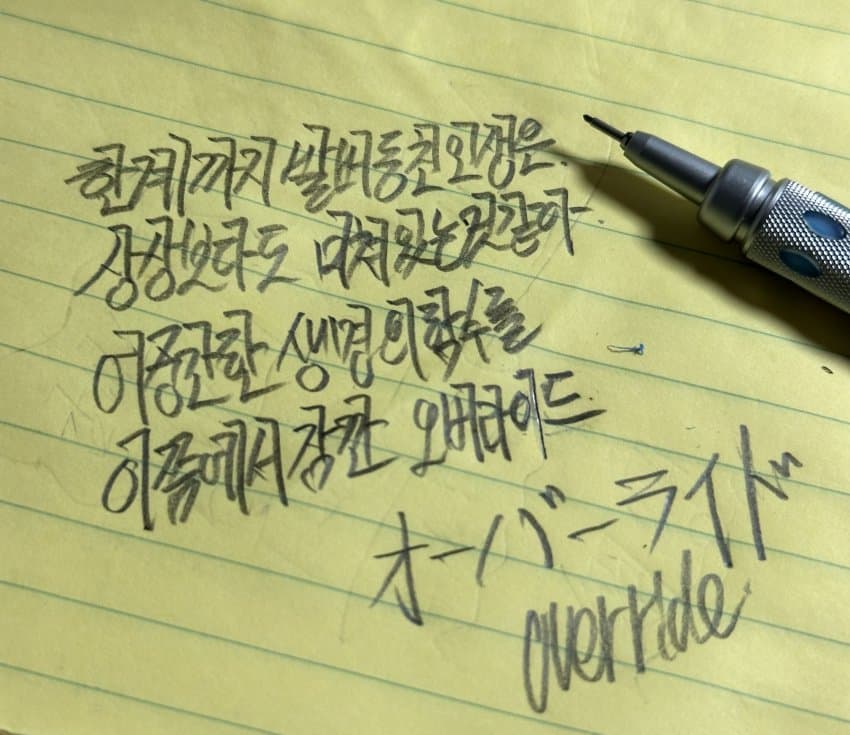 한계까지 발버둥친 인생은.
상상보다도 미쳐있는것같아.
어중간한 생명의 학수를
이쯤에서 잠깐 오버라이드.
オーバーライド
override